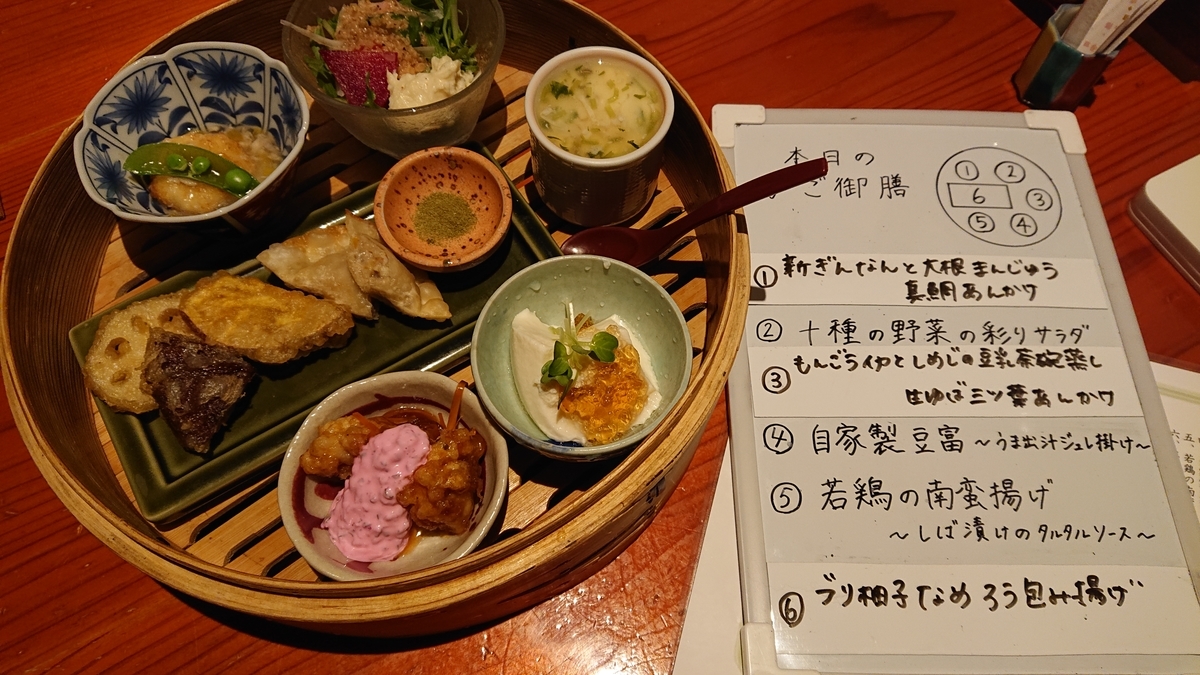 本日の
ご御膳
① ② ③ ④ ⑤ 6
① 新ぎんなんと大根まんじゅう
真鯛あんかけ
② 十種の野菜の彩りサラダ
③ もんごうイカとしめじの豆乳茶碗蒸し
生ゆば三ツ葉あんかけ
④ 自家製豆富 ~うま出汁ジュレ掛け~
⑤ 若鶏の南蛮揚げ
~しば漬けのタルタルソース~
⑥ ブリ柚子なめろう包み揚げ
五、
六、若鶏の南